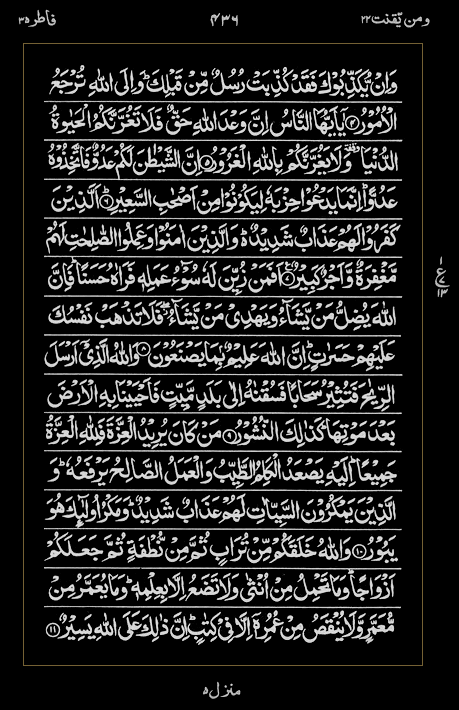 ومن يّقنت ٢٢
٤٣٦
فاطر ٣٥
وَاِنْ يُّكَذِّبُوْكَ فَقَدْ كُذِّبَتْ رُسُلٌ مِّنْ قَبْلِكَ ؕ وَاِلَى اللّٰهِ تُرْجَعُ
الْاُمُوْرُ ﴿۴﴾ يٰۤاَيُّهَا النَّاسُ اِنَّ وَعْدَ اللّٰهِ حَقٌّ فَلَا تَغُرَّنَّكُمُ الْحَيٰوةُ
الدُّنْيَا ۥ وَلَا يَغُرَّنَّكُمْ بِاللّٰهِ الْغَرُوْرُ ﴿۵﴾ اِنَّ الشَّيْطٰنَ لَكُمْ عَدُوٌّ فَاتَّخِذُوْهُ
عَدُوًّا ؕ اِنَّمَا يَدْعُوْا حِزْبَهٗ لِيَكُوْنُوْا مِنْ اَصْحٰبِ السَّعِيْرِ ﴿۶﴾ اَلَّذِيْنَ
كَفَرُوْا لَهُمْ عَذَابٌ شَدِيْدٌ ۥ وَالَّذِيْنَ اٰمَنُوْا وَعَمِلُوا الصّٰلِحٰتِ لَهُمْ
مَّغْفِرَةٌ وَّاَجْرٌ كَبِيْرٌ ﴿۷﴾ اَفَمَنْ زُيِّنَ لَهٗ سُوْٓءُ عَمَلِهٖ فَرَاٰهُ حَسَنًا ؕ فَاِنَّ
اللّٰهَ يُضِلُّ مَنْ يَّشَآءُ وَيَهْدِيْ مَنْ يَّشَآءُ ۖ فَلَا تَذْهَبْ نَفْسُكَ
عَلَيْهِمْ حَسَرٰتٍ ؕ اِنَّ اللّٰهَ عَلِيْمٌۢ بِمَا يَصْنَعُوْنَ ﴿۸﴾ وَاللّٰهُ الَّذِيْۤ اَرْسَلَ
الرِّيٰحَ فَتُثِيْرُ سَحَابًا فَسُقْنٰهُ اِلٰى بَلَدٍ مَّيِّتٍ فَاَحْيَيْنَا بِهِ الْاَرْضَ
بَعْدَ مَوْتِهَا ؕ كَذٰلِكَ النُّشُوْرُ ﴿۹﴾ مَنْ كَانَ يُرِيْدُ الْعِزَّةَ فَلِلّٰهِ الْعِزَّةُ
جَمِيْعًا ؕ اِلَيْهِ يَصْعَدُ الْكَلِمُ الطَّيِّبُ وَالْعَمَلُ الصَّالِحُ يَرْفَعُهٗ ؕ وَ
الَّذِيْنَ يَمْكُرُوْنَ السَّيِّاٰتِ لَهُمْ عَذَابٌ شَدِيْدٌ ؕ وَمَكْرُ اُولٰٓئِكَ هُوَ
يَبُوْرُ ﴿۱۰﴾ وَاللّٰهُ خَلَقَكُمْ مِّنْ تُرَابٍ ثُمَّ مِنْ نُّطْفَةٍ ثُمَّ جَعَلَكُمْ
اَزْوَاجًا ؕ وَمَا تَحْمِلُ مِنْ اُنْثٰى وَلَا تَضَعُ اِلَّا بِعِلْمِهٖ ؕ وَمَا يُعَمَّرُ مِنْ
مُّعَمَّرٍ وَّلَا يُنْقَصُ مِنْ عُمُرِهٖۤ اِلَّا فِيْ كِتٰبٍ ؕ اِنَّ ذٰلِكَ عَلَى اللّٰهِ يَسِيْرٌ ﴿۱۱﴾
١
ع
١٣
منزل ٥